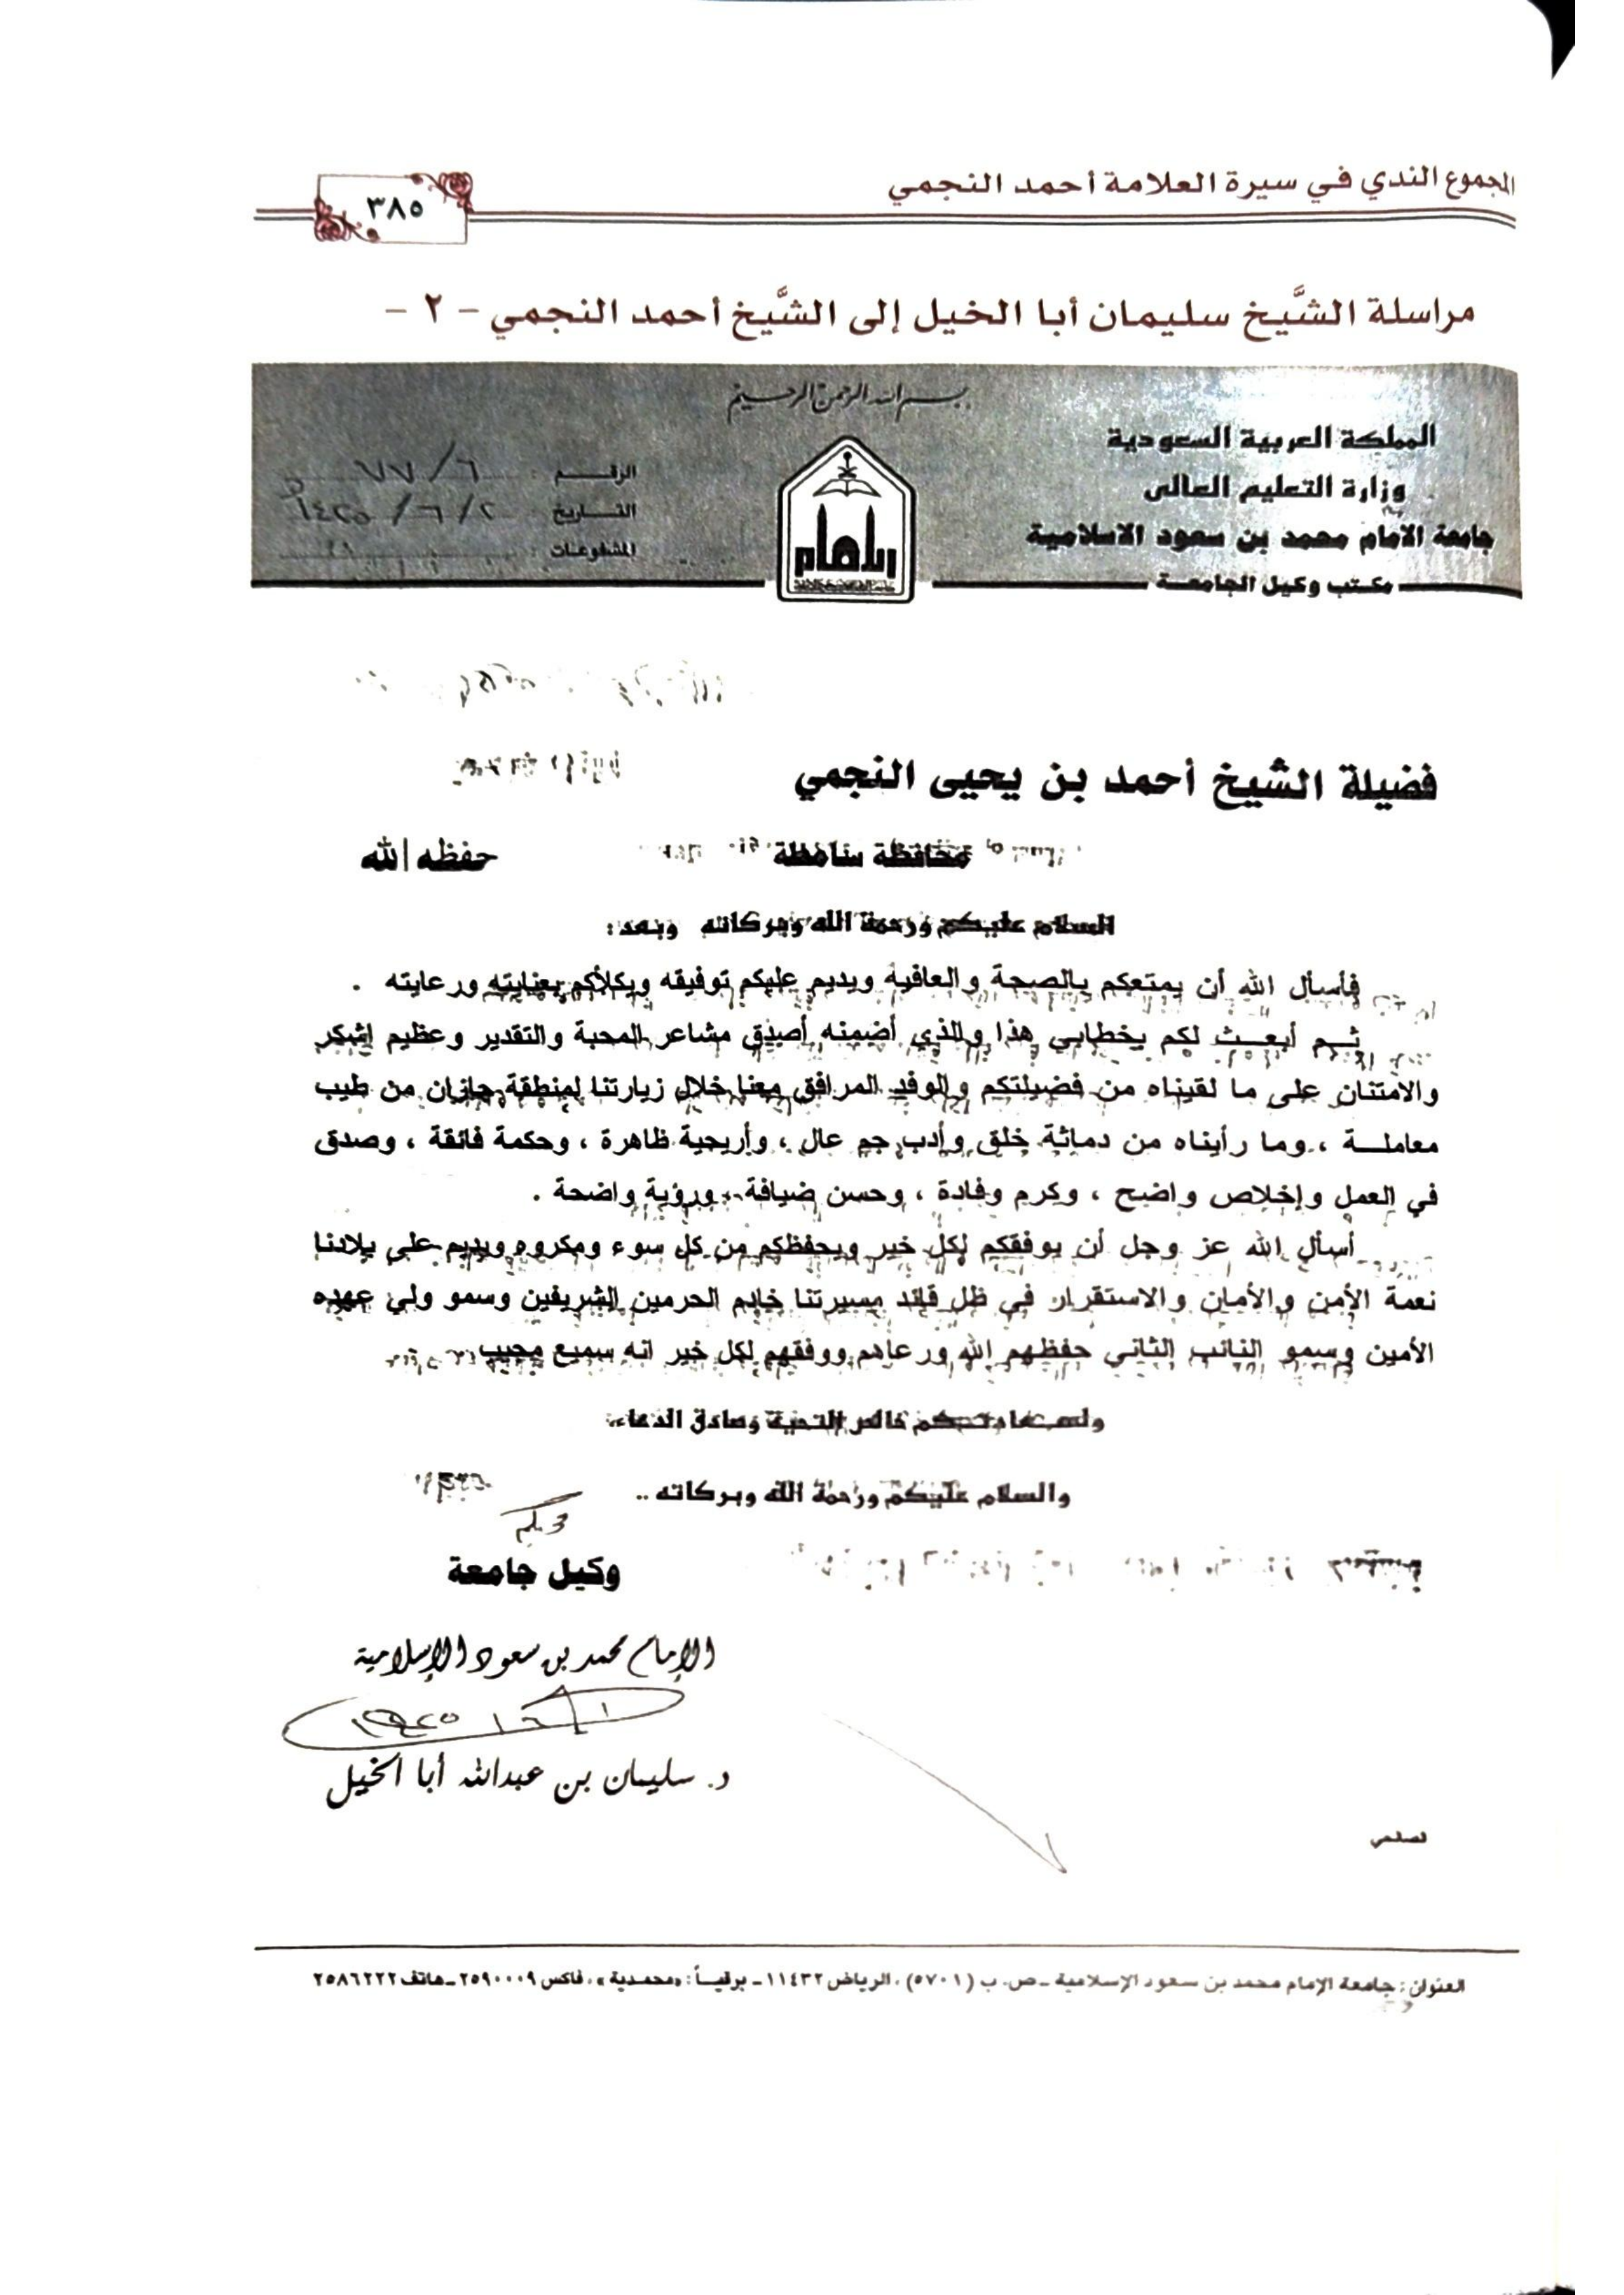 المجموع الندي في سيرة العلامة أحمد النجمي
٣٨٥
مراسلة الشَّيخ سليمان أبا الخيل إلى الشَّيخ أحمد النجمي - ٢ -
بسم الله الرحمن الرحيم
المملكة العربية السعودية
وزارة التعليم العالي
جامعة الامام محمد بن سعود الاسلامية
مكتب وكيل الجامعة
الرقم : ٦٧٧/٦
التاريخ ١٤٢٥/٦/٢
المشفوعات :
الإمام
فضيلة الشيخ أحمد بن يحيى النجمي
محافظة صامطة حفظه الله
السلام عليكم ورحمة الله وبركاته وبعد :
فأسأل الله أن يمتعكم بالصحة والعافية ويديم عليكم توفيقه ويكلأكم بعنايته ورعايته .
ثم أبعث لكم بخطابي هذا والذي أضمنه أصدق مشاعر المحبة والتقدير وعظيم الشكر
والامتنان على ما لقيناه من فضيلتكم والوفد المرافق معنا خلال زيارتنا لمنطقة جازان من طيب
معاملة ، وما رأيناه من دماثة خلق وأدب جم عال ، وأريحية ظاهرة ، وحكمة فائقة ، وصدق
في العمل وإخلاص واضح ، وكرم وفادة ، وحسن ضيافة ، ورؤية واضحة .
أسأل الله عز وجل أن يوفقكم لكل خير ويحفظكم من كل سوء ومكروه ويديم على بلادنا
نعمة الأمن والأمان والاستقرار في ظل قائد مسيرتنا خادم الحرمين الشريفين وسمو ولي عهده
الأمين وسمو النائب الثاني حفظهم الله ورعاهم ووفقهم لكل خير انه سميع مجيب
ولسعادتكم خالص التحية وصادق الدعاء،
والسلام عليكم ورحمة الله وبركاته ..
وكيل جامعة
الإمام محمد بن سعود الإسلامية
د. سليمان بن عبدالله أبا الخيل
العنوان : جامعة الإمام محمد بن سعود الإسلامية - ص. ب (٥٧٠١) ، الرياض ١١٤٣٢ - برقيـاً : «محمدية» ، فاكس ٢٥٩٠٠٠٩ - هاتف ٢٥٨٦٢٢٢